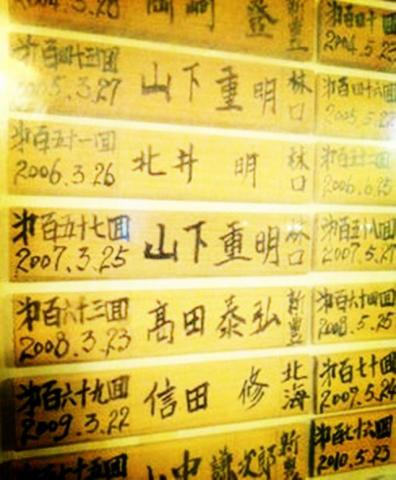 2004.3.28
岡崎
登
新豊
第百四十回
2004.5.23
第百四十五回
2005.3.27
山下重明
林口
第百四十六回
2005.5.22
第百五十一回
2006.3.26
北井 明
林口
2006.6.25
第百五十七回
2007.3.25
山下重明
林口
第百五十八回
2007.5.27
第百六十三回
2008.3.23
髙田泰弘
新豊
第百六十四回
2008.5.25
第百六十九回
2009.3.22
信田 修
北海
第百七十回
2009.5.24
第百七十五回
山中謙次郎
新豊
第百七十六回
2010.5.23